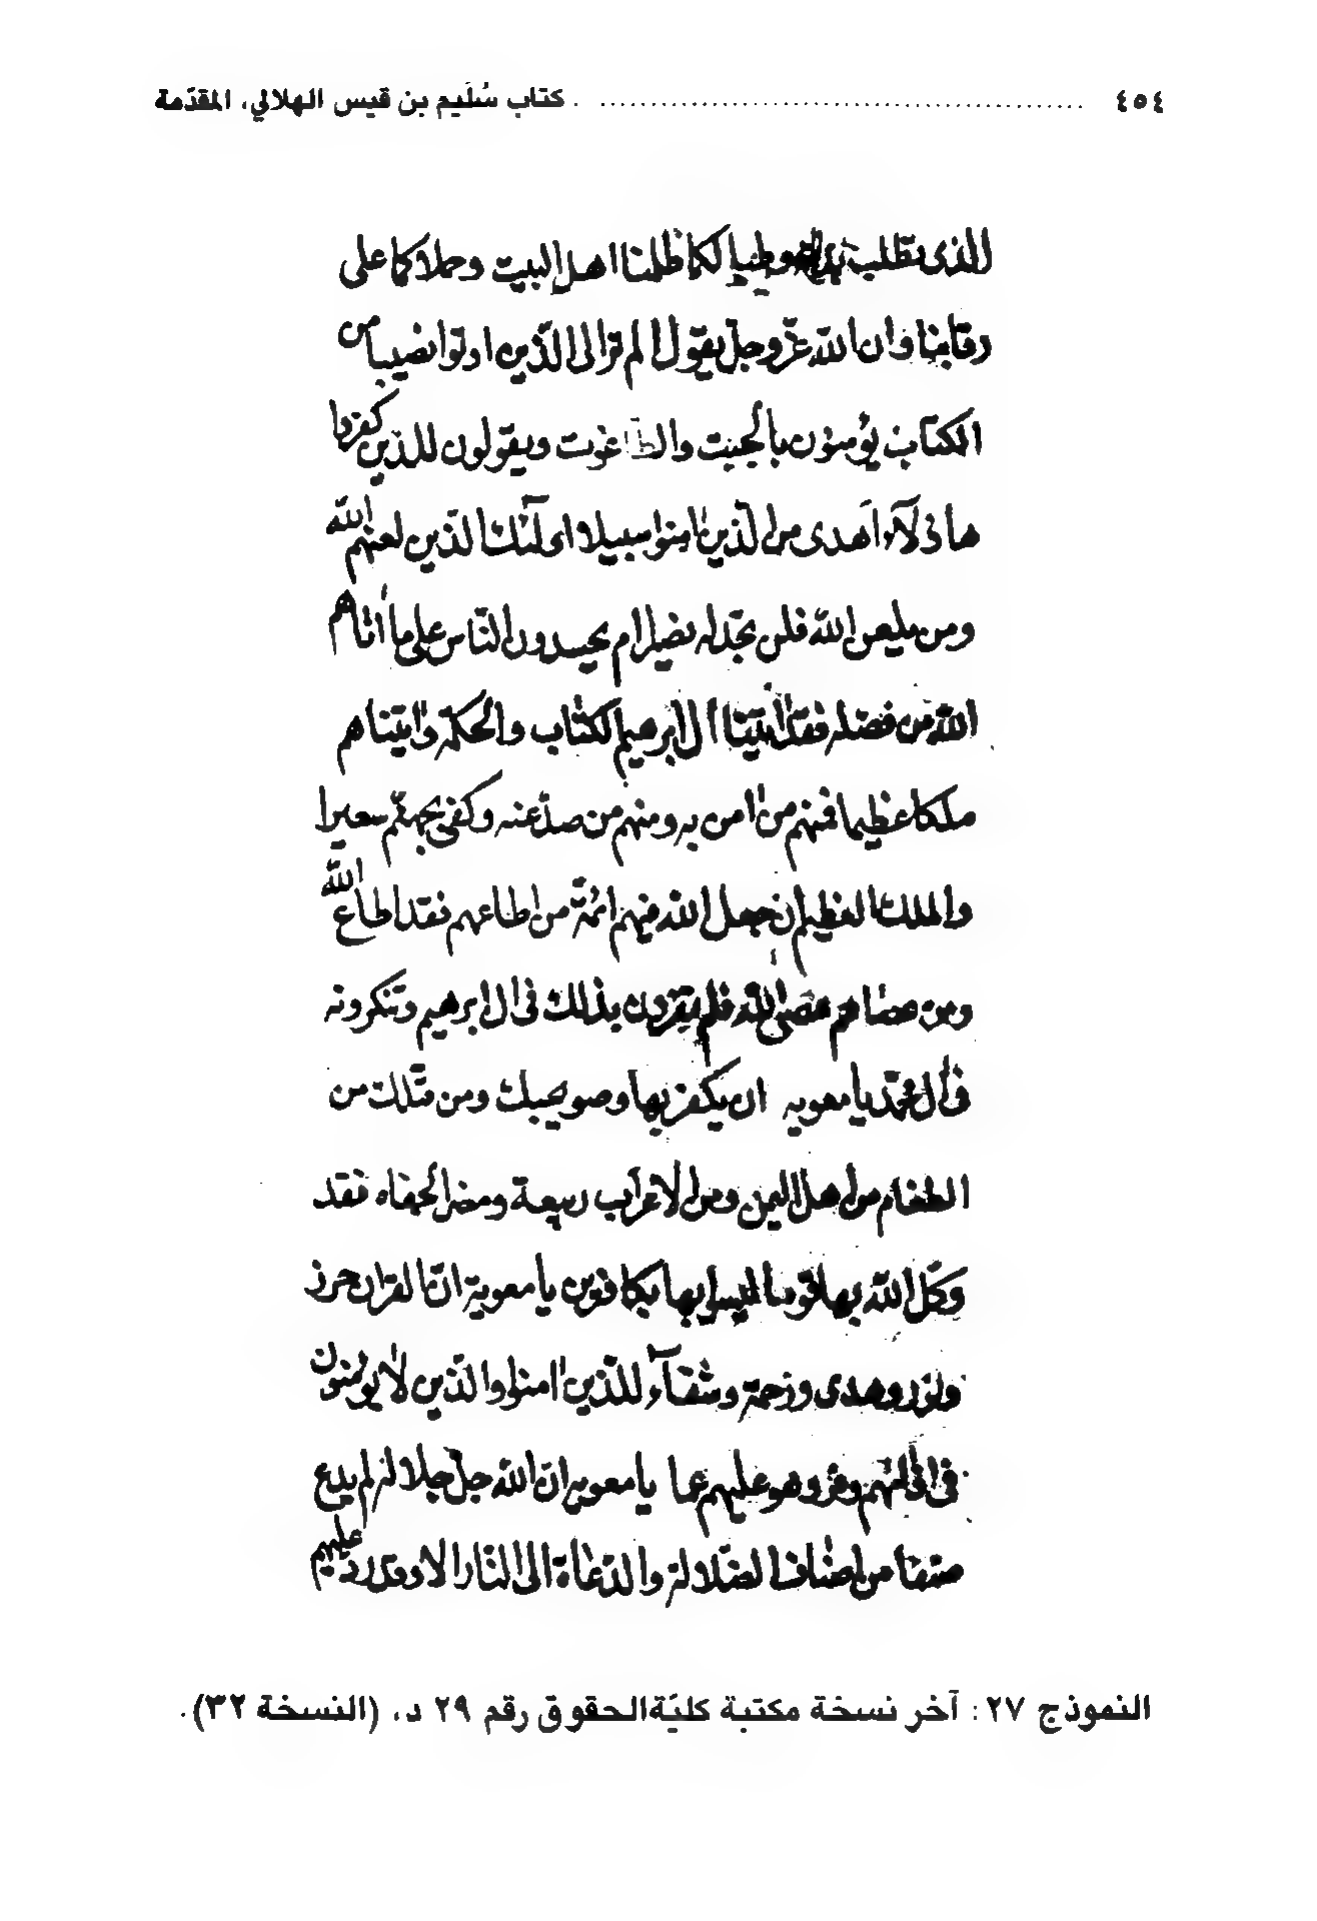 ٤٥٤ ........ كتاب سُلَيم بن قيس الهلالي، المقدّمة
للذى تطلب ظلمنا اهل البيت وحملا كما على
رقابنا وان الله عزّ وجلّ يقول الم تر الى الذّين اوتوا نصيبا من
الكتاب يؤمنون بالجبت والطاغوت ويقولون للذين كفروا
هاذلآء اهدى من الّذين امنوا سبيلا اولئك الذّين لعنهم الله
ومن يلعن الله فلن تجد له نصيرا ام يحسدون النّاس على ما اتاهم
الله من فضله فقد اتينا ال ابرهيم الكتاب والحكمة واتيناهم
ملكا عظيما فمنهم من امن به ومنهم من صدّ عنه وكفى بجهنّم سعيرا
والملك العظيم ان جعل الله فيهم ائمّة من اطاعهم فقد اطاع الله
ومن عصاهم عصى الله فلم يقرون بذلك فى ال ابرهيم وتنكرونه
فى ال محمّد يا معويه ان يكفر بها وصويحبك ومن قبلك من
الطغام من اهل اليمن ومن الاعراب ربيعة ومضر الجفاء فقد
وكّل الله بها قوما ليسوا بها بكافرين يا معوية انّ القران حرز
ونور وهدى ورحمة وشفآء للذّين امنوا والذّين لا يؤمنون
فى اذانهم وقر وهو عليهم عما يا معويه انّ الله جلّ جلاله لم يدع
صنفا من اصناف الضّلالة والدّعاة الى النّار الا وقد ردّ عليهم
النموذج ٢٧ : آخر نسخة مكتبة كليّة الحقوق رقم ٢٩ د، (النسخة ٣٢).